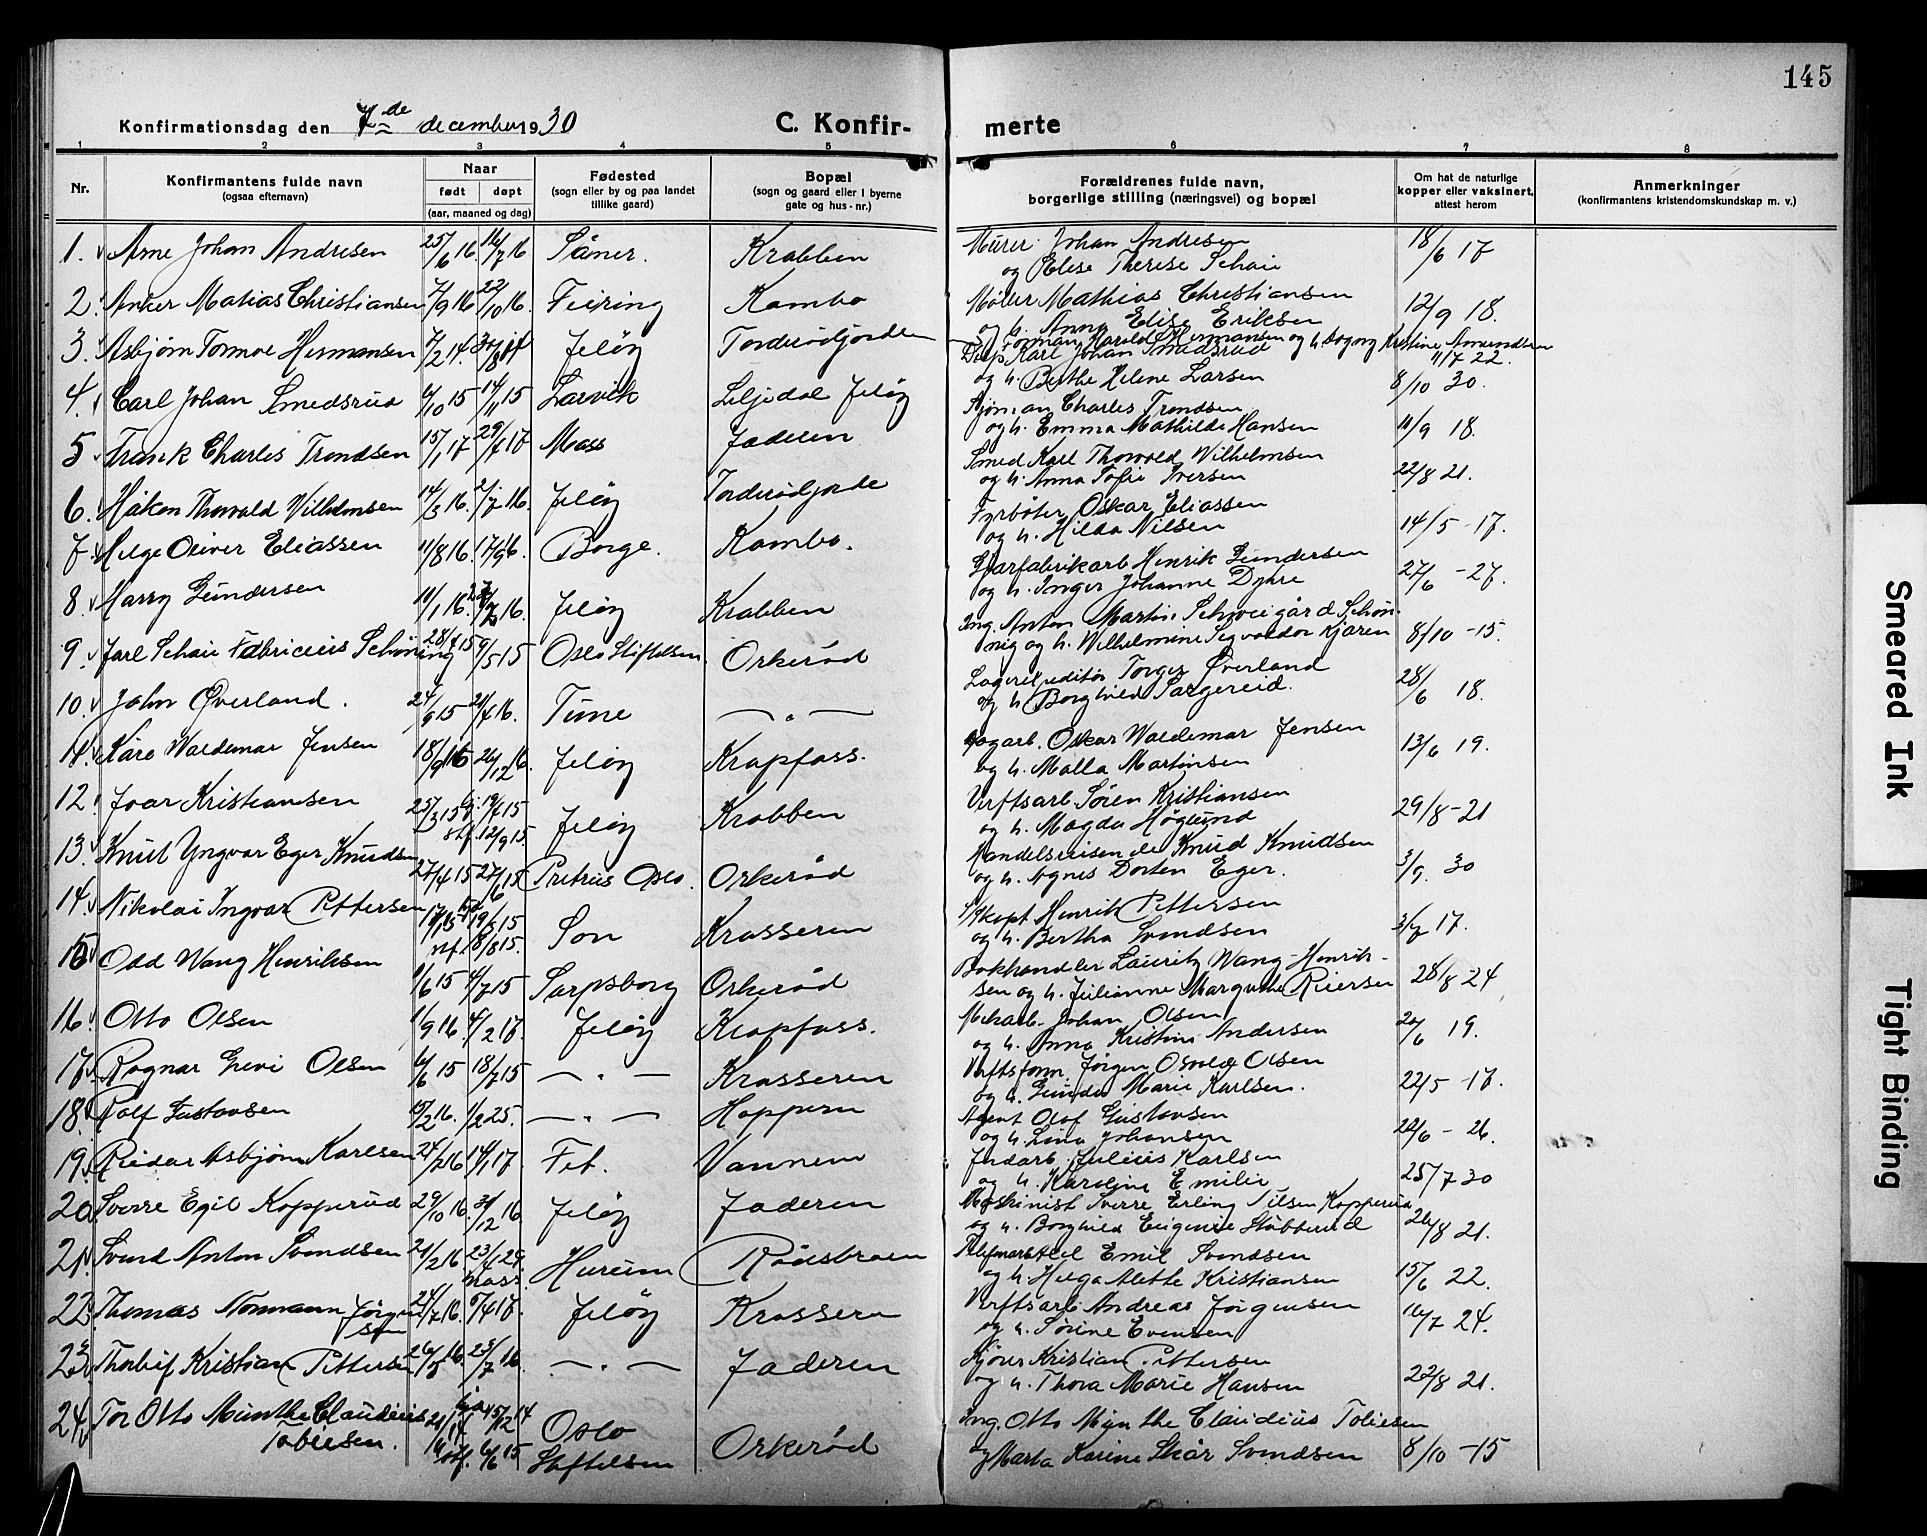 145
Konfirmationsdag den 7de december 1930
C. Konfir- merte
1 2 3 4 5 6 7 8
Nr.
Konfirmantens fulde navn
(ogsaa efternavn)
Naar
født døpt
(aar, maaned og dag)
Fødested
(sogn eller by og paa landet
tillike gaard)
Bopæl
(sogn og gaard eller i byerne
gate og hus-nr.)
Forældrenes fulde navn,
borgerlige stilling (næringsvei) og bopæl
Om hat de naturlige
kopper eller vaksinert,
attest herom
Anmerkninger
(konfirmantens kristendomskundskap m. v.)
1. Arne Johan Andresen 25/6 16 16/7 16 Såner. Krabben Murer Johan Andresen 18/6 17
og Elise Therese Schau
2. Anker Matias Christiansen 7/9 16 22/10 16. Feiring Kambo Møller Mathias Christiansen 12/9 18.
og h. Anna Elise Eriksen
3. Asbjørn Tormoe Hermansen 7/2 14 Jeløy Torderødjordet Forman Harald Hermansen og h. Dagny Kristine Amundsen 11/7 22.
4. Carl Johan Smedsrud 6/10 15 14/11 15 Larvik Liljedal Jeløy Karl Johan Smedsrud
og h. Berthe Helene Larsen 8/10 30.
5 Frank Charles Trondsen 15/1 17 29/7 17 Moss Jaderen Sjøman Charles Trondsen
og h. Emma Mathilde Hansen 11/9 18.
6. Håkon Thorvald Vilhelmsen 14/5 16. 2/7 16. Jeløy Torderødjorde Smed Karl Thorvald Vilhelmsen
og h. Anna Sofie Iversen 22/8 21.
7. Helge Oliver Eliassen 11/8 16. 17/9 16. Borge. Kambo. Fyrbøter Oskar Eliassen
og h. Hilda Nilsen 14/5 - 17.
8. Harry Gundersen 11/1 16. Jeløy Krabben Glasfabrikarb Henrik Gundersen
og h. Inger Johanne Dyhre 27/6 - 27.
9. Jarl Schau Fabricius Schøning 28/4 15 9/5 15 Oslo Stiftelsen Orkerød Ing. Anton Martin Schweigård Schøn-
nig og h. Wilhelmine Segvalda Kjæren 8/10 - 15.
10. John Øverland. 24/9 15 24/4 16. Time — " — Lagerekspeditør Torger Øverland
og h. Borghild Sargereid. 28/6 18.
11. Kåre Waldemar Jensen 18/9 16 26/12 16. Jeløy Krapfoss. Oskar Waldemar Jensen
og h. Malla Martinsen 13/6 19.
12. Joar Kristiansen 25/3 15 19/4 15
stf. 12/9 15 Jeløy Krabben Verftsarb Søren Kristiansen
og h. Magda Høglund 29/8 - 21
13. Knut Yngvar Eger Knudsen 27/4 15 27/6 15 Petrus Oslo. Orkerød Handelsreisende Knud Knudsen
og h. Agnes Dorten Eger. 3/9. 30
14. Nikolai Ingvar Pettersen 19/5 15
stf. 8/8 15. Son Krasseren Henrik Pettersen
og h. Bertha Svendsen 3/7 17.
15 Odd Wang Henriksen 1/6 15 4/7 15 Sarpsborg Orkerød Bokhandler Lauritz Wang-Henrik-
sen og h. Julianne Margrethe Riersen 28/8 - 24
16. Otto Olsen 1/9 16 4/2 17. Jeløy Krapfoss. Mekarb. Johan Olsen
og h. Anna Kristine Andersen 20/6 19.
17. Ragnar Levi Olsen 6/6 15 18/7 15 — " — Krasseren Verftsform. Jørgen Osvald Olsen
og h. Gunda Marie Karlsen. 22/5 - 17.
18. Rolf Gustavsen 15/2 16. 1/2 25. — " — Hoppern Agent Olof Gustavsen
og h. Lina Johansen 20/6 - 26.
19. Reidar Asbjørn Karlsen 24/7 16 14/1 17 Fet. Vannem Indarb. Julius Karlsen
og h. Karoline Emilie 25/7 30
20. Sverre Egil Kopperud 29/10 16. 31/12 16 Jeløy Jaderen Maskinist Sverre Erling Nilsen Kopperud
og h. Borghild Eugenie Stubberud 26/8 21.
21. Svend Anton Svendsen 21/2 16 23/1 29.
Moss Hurum Rødsbraten Emil Svendsen
og h. Helga Alette Kristiansen 15/6 22.
22. Thomas Normann Jørgen-
sen 24/7 16. 9/4 17. Jeløy Krasseren Verftsarb Andreas Jørgensen
og h. Sørine Evensen 16/7 24.
23. Thorleif Kristian Pettersen 26/5 16. 23/7 16 — " — Jaderen Kjører Kristian Pettersen
og h. Thora Marie Hansen 22/8 21.
24. Tor Otto Munthe Claudius
Tobiesen. Oslo
Stiftelsen Orkerød Ing. Otto Munthe Claudius Tobiesen
og Marta Karine Skår Svendsen 8/10 - 15
Smeared Ink
Tight Binding